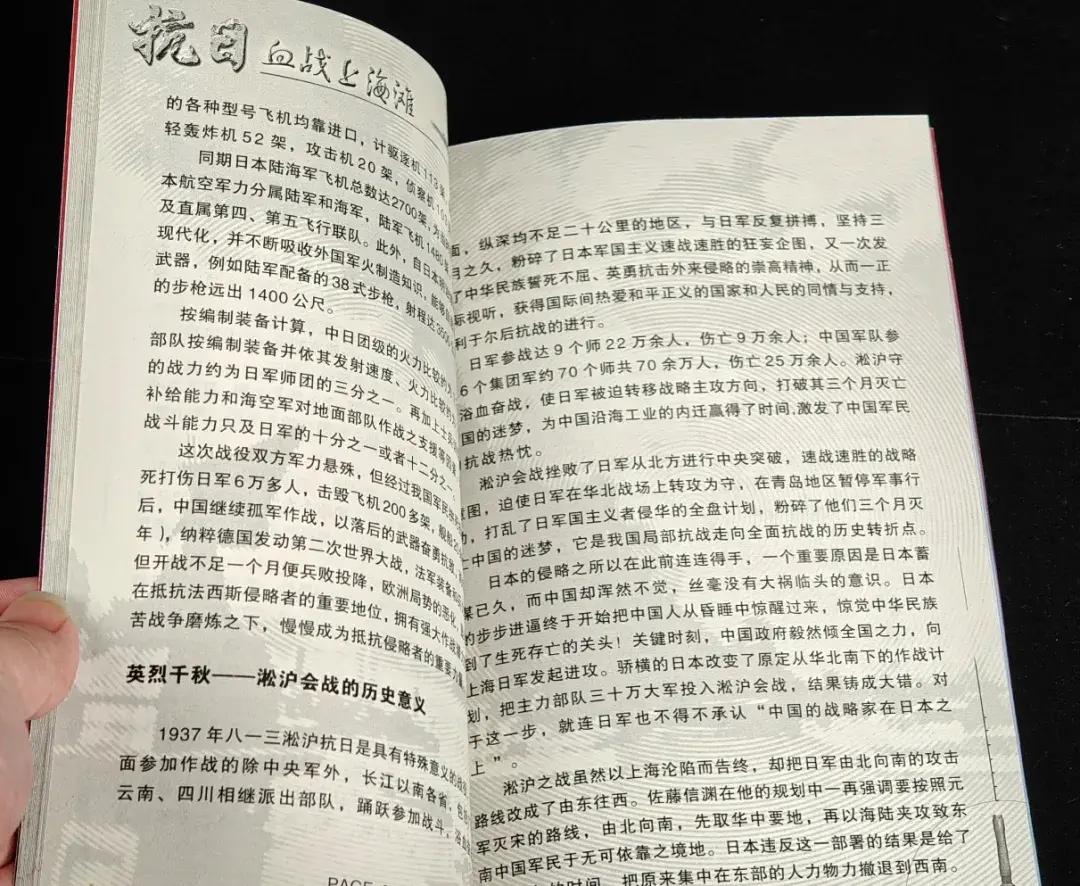 抗日 血战上海滩
的各种型号飞机均靠进口，计驱逐机113
轻轰炸机52架，攻击机20架，侦察机
同期日本陆海军飞机总数达2700架，
本航空军力分属陆军和海军，陆军飞机1480
及直属第四、第五飞行联队。此外，自日本
现代化，并不断吸收外国军火制造知识，能够
武器，例如陆军配备的38式步枪，射程达
的步枪远出1400公尺。
按编制装备计算，中日团级的火力比较约
部队按编制装备并依其发射速度、火力比较
的战力约为日军师团的三分之一。再加上士兵
补给能力和海空军对地面部队作战之支援等
战斗能力只及日军的十分之一或者十二分之一。
这次战役双方军力悬殊，但经过我国军民
死打伤日军6万多人，击毁飞机200多架，
后，中国继续孤军作战，以落后的武器奋勇抗
年），纳粹德国发动第二次世界大战，法军装备
但开战不足一个月便兵败投降，欧洲局势的恶化，
在抵抗法西斯侵略者的重要地位，拥有强大作战
苦战争磨炼之下，慢慢成为抵抗侵略者的重要力
英烈千秋——淞沪会战的历史意义
1937年八一三淞沪抗日是具有特殊意义的
面参加作战的除中央军外，长江以南各省，
云南、四川相继派出部队，踊跃参加战斗，
PAGE
面，纵深均不足二十公里的地区，与日军反复拼搏，坚持三
月之久，粉碎了日本军国主义速战速胜的狂妄企图，又一次发
了中华民族誓死不屈、英勇抗击外来侵略的崇高精神，从而一正
际视听，获得国际间热爱和平正义的国家和人民的同情与支持，
利于尔后抗战的进行。
日军参战达9个师22万余人，伤亡9万余人；中国军队参
6个集团军约70个师共70余万人，伤亡25万余人。淞沪守
浴血奋战，使日军被迫转移战略主攻方向，打破其三个月灭亡
国的迷梦，为中国沿海工业的内迁赢得了时间,激发了中国军民
抗战热忱。
淞沪会战挫败了日军从北方进行中央突破，速战速胜的战略
图，迫使日军在华北战场上转攻为守，在青岛地区暂停军事行
，打乱了日军国主义者侵华的全盘计划，粉碎了他们三个月灭
亡中国的迷梦，它是我国局部抗战走向全面抗战的历史转折点。
日本的侵略之所以在此前连连得手，一个重要原因是日本蓄
谋已久，而中国却浑然不觉，丝毫没有大祸临头的意识。日本
的步步进逼终于开始把中国人从昏睡中惊醒过来，惊觉中华民族
到了生死存亡的关头！关键时刻，中国政府毅然倾全国之力，向
上海日军发起进攻。骄横的日本改变了原定从华北南下的作战计
划，把主力部队三十万大军投入淞沪会战，结果铸成大错。对
于这一步，就连日军也不得不承认“中国的战略家在日本之
上”。
淞沪之战虽然以上海沦陷而告终，却把日军由北向南的攻击
路线改成了由东往西。佐藤信渊在他的规划中一再强调要按照元
军灭宋的路线，由北向南，先取华中要地，再以海陆夹攻致东
南中国军民于无可依靠之境地。日本违反这一部署的结果是给了
的时间，把原来集中在东部的人力物力撤退到西南。